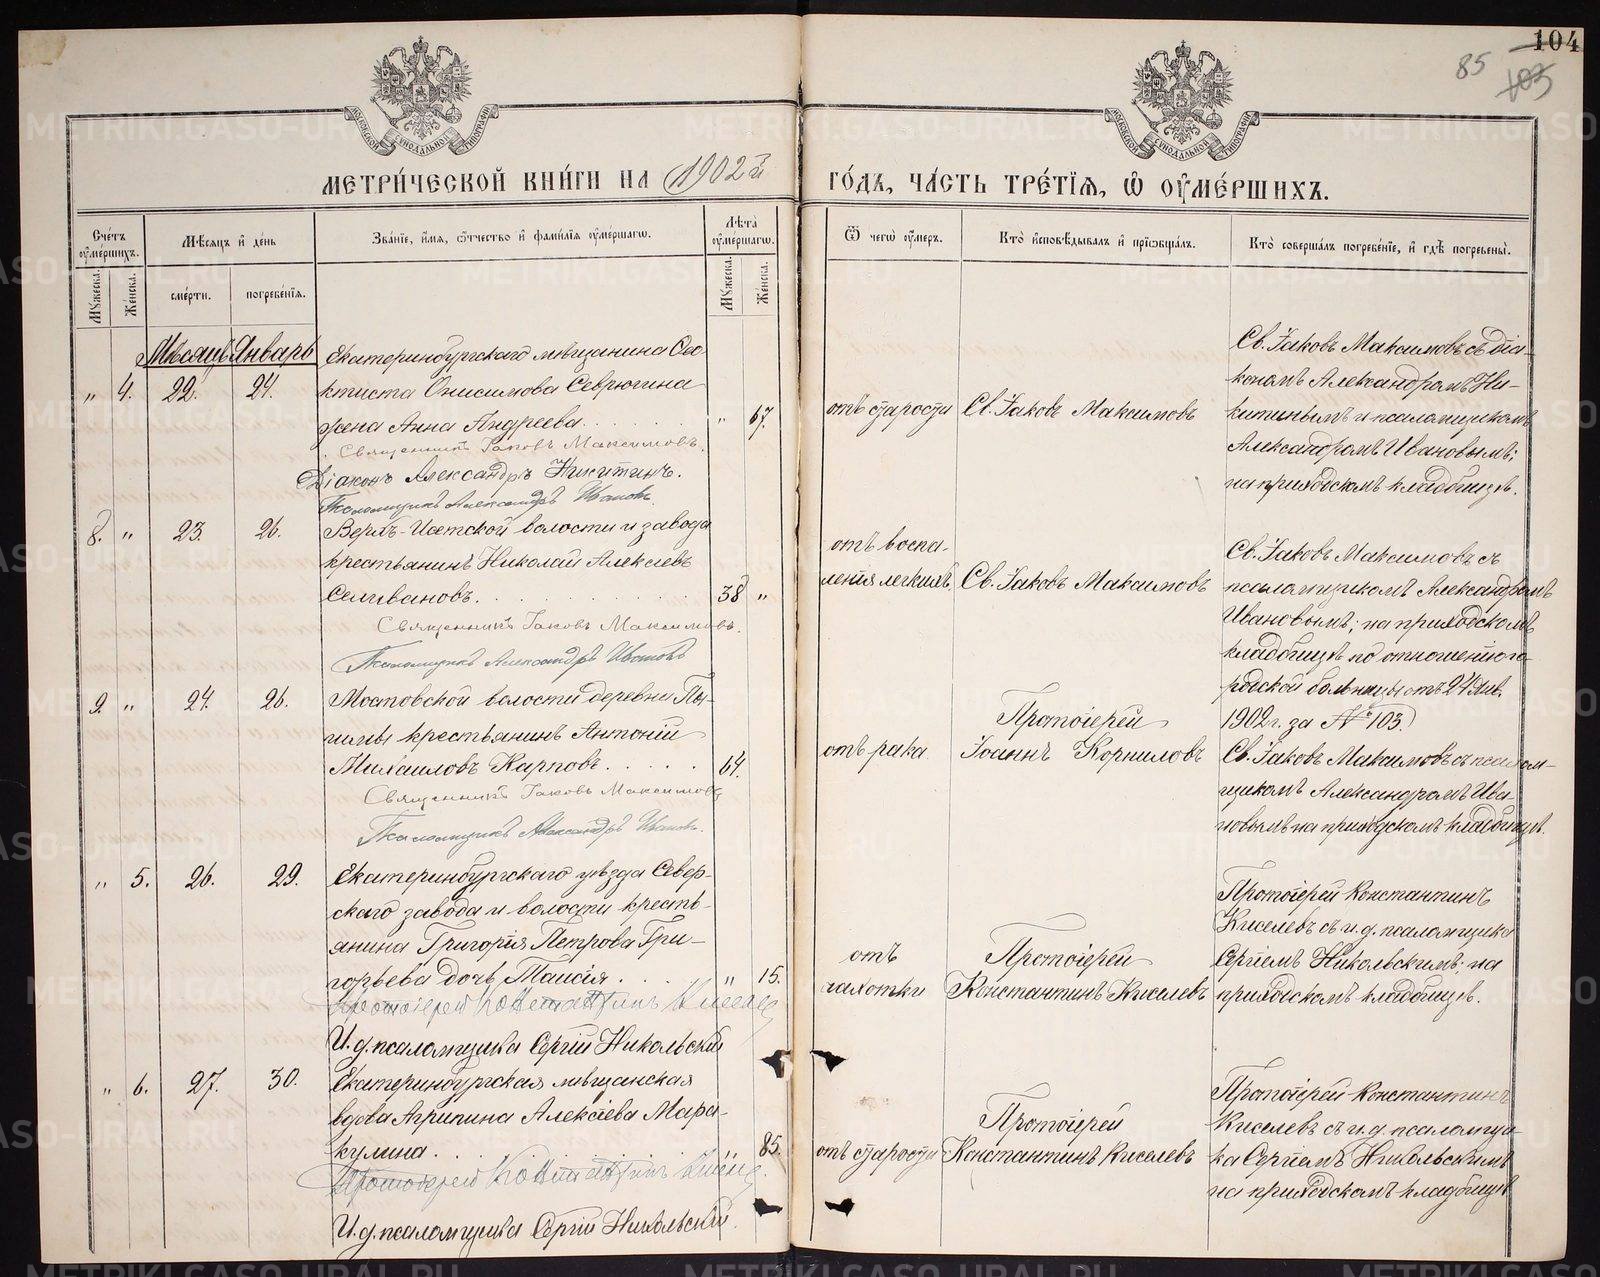 104
85
103
МОСКОВСКОЙ СѴНОДАЛЬНОЙ ТИПОГРАФІИ
МОСКОВСКОЙ СѴНОДАЛЬНОЙ ТИПОГРАФІИ
МЕТРИ́ЧЕСКОЙ КНИ́ГИ НА 1902й ГО́ДЪ, ЧА́СТЬ ТРЕ́ТІѦ, Ѡ҆ ОУ҆МЕ́РШИХЪ.
Сче́тъ оу҆ме́ршихъ.
Мꙋ́жеска.
Же́нска.
Мѣ́сяцъ и҆ де́нь
сме́рти.
погребе́нїѧ.
Зва́нїе, и҆́мѧ, ѻ҆́тчество и҆ фами́лїѧ оу҆ме́ршагѡ.
Лѣ́та оу҆ме́ршагѡ.
Мꙋ́жеска.
Же́нска.
Ѿ чегѡ̀ оу҆́меръ.
Кто̀ и҆сповѣ́дывалъ и҆ прїѡбща́лъ.
Кто̀ соверша́лъ погребе́нїе, и҆ гдѣ̀ погребены̀.
Мѣсяцъ Январь
„ 4. 22. 24.
Екатеринбургскаго мѣщанина Ѳео-
ктиста Онисимова Севрюгина
жена Анна Андреева . . . . . . „ 67.
Священникъ Іаковъ Максимовъ.
Діаконъ Александръ Никитинъ.
Псаломщикъ Александръ Ивановъ.
отъ старости
Св. Іаковъ Максимовъ
Св. Іаковъ Максимовъ съ діа-
кономъ Александромъ Ни-
китинымъ и псаломщикомъ
Александромъ Ивановымъ;
на приходскомъ кладбищѣ.
8. „ 23. 26.
Верхъ-Исетской волости и завода
крестьянинъ Николай Алексѣевъ
Селивановъ. . . . . . . . . . 38 „
Священникъ Іаковъ Максимовъ.
Псаломщикъ Александръ Ивановъ
отъ воспа-
ленія легкихъ.
Св. Іаковъ Максимовъ
Св. Іаковъ Максимовъ съ
псаломщикомъ Александромъ
Ивановымъ; на приходскомъ
кладбищѣ по отношенію го-
родской больницы отъ 24 Янв.
1902 г. за № 103.
9. „ 24. 26.
Мостовской волости деревни Пы-
шмы крестьянинъ Антоній
Михаиловъ Карповъ . . . . . 64.
Священникъ Іаковъ Максимовъ
Псаломщикъ Александръ Ивановъ.
отъ рака
Протоіерей
Іоаннъ Корниловъ
Св. Іаковъ Максимовъ съ псалом-
щикомъ Александромъ Ива-
новымъ на приходскомъ кладбищѣ.
„ 5. 26. 29.
Екатеринбургскаго уѣзда Север-
скаго завода и волости кресть-
янина Григорія Петрова Гри-
горьева дочь Таисія . . . . „ 15.
Протоіерей Константинъ Киселевъ
И. д. псаломщика Сергій Никольскій
отъ
чахотки
Протоіерей
Константинъ Киселевъ
Протоіерей Константинъ
Киселевъ съ и. д. псаломщика
Сергіемъ Никольскимъ; на
приходскомъ кладбищѣ.
„ 6. 27. 30.
Екатеринбургская мѣщанская
вдова Агрипина Алексѣева Мара-
кулина . . . . . . . 85.
Протоіерей Константинъ Киселевъ
И. д. псаломщика Сергій Никольскій.
отъ старости
Протоіерей
Константинъ Киселевъ
Протоіерей Константинъ
Киселевъ съ и. д. псаломщи-
ка Сергіемъ Никольскимъ
на приходскомъ кладбищѣ
METRIKI.GASO-URAL.RU